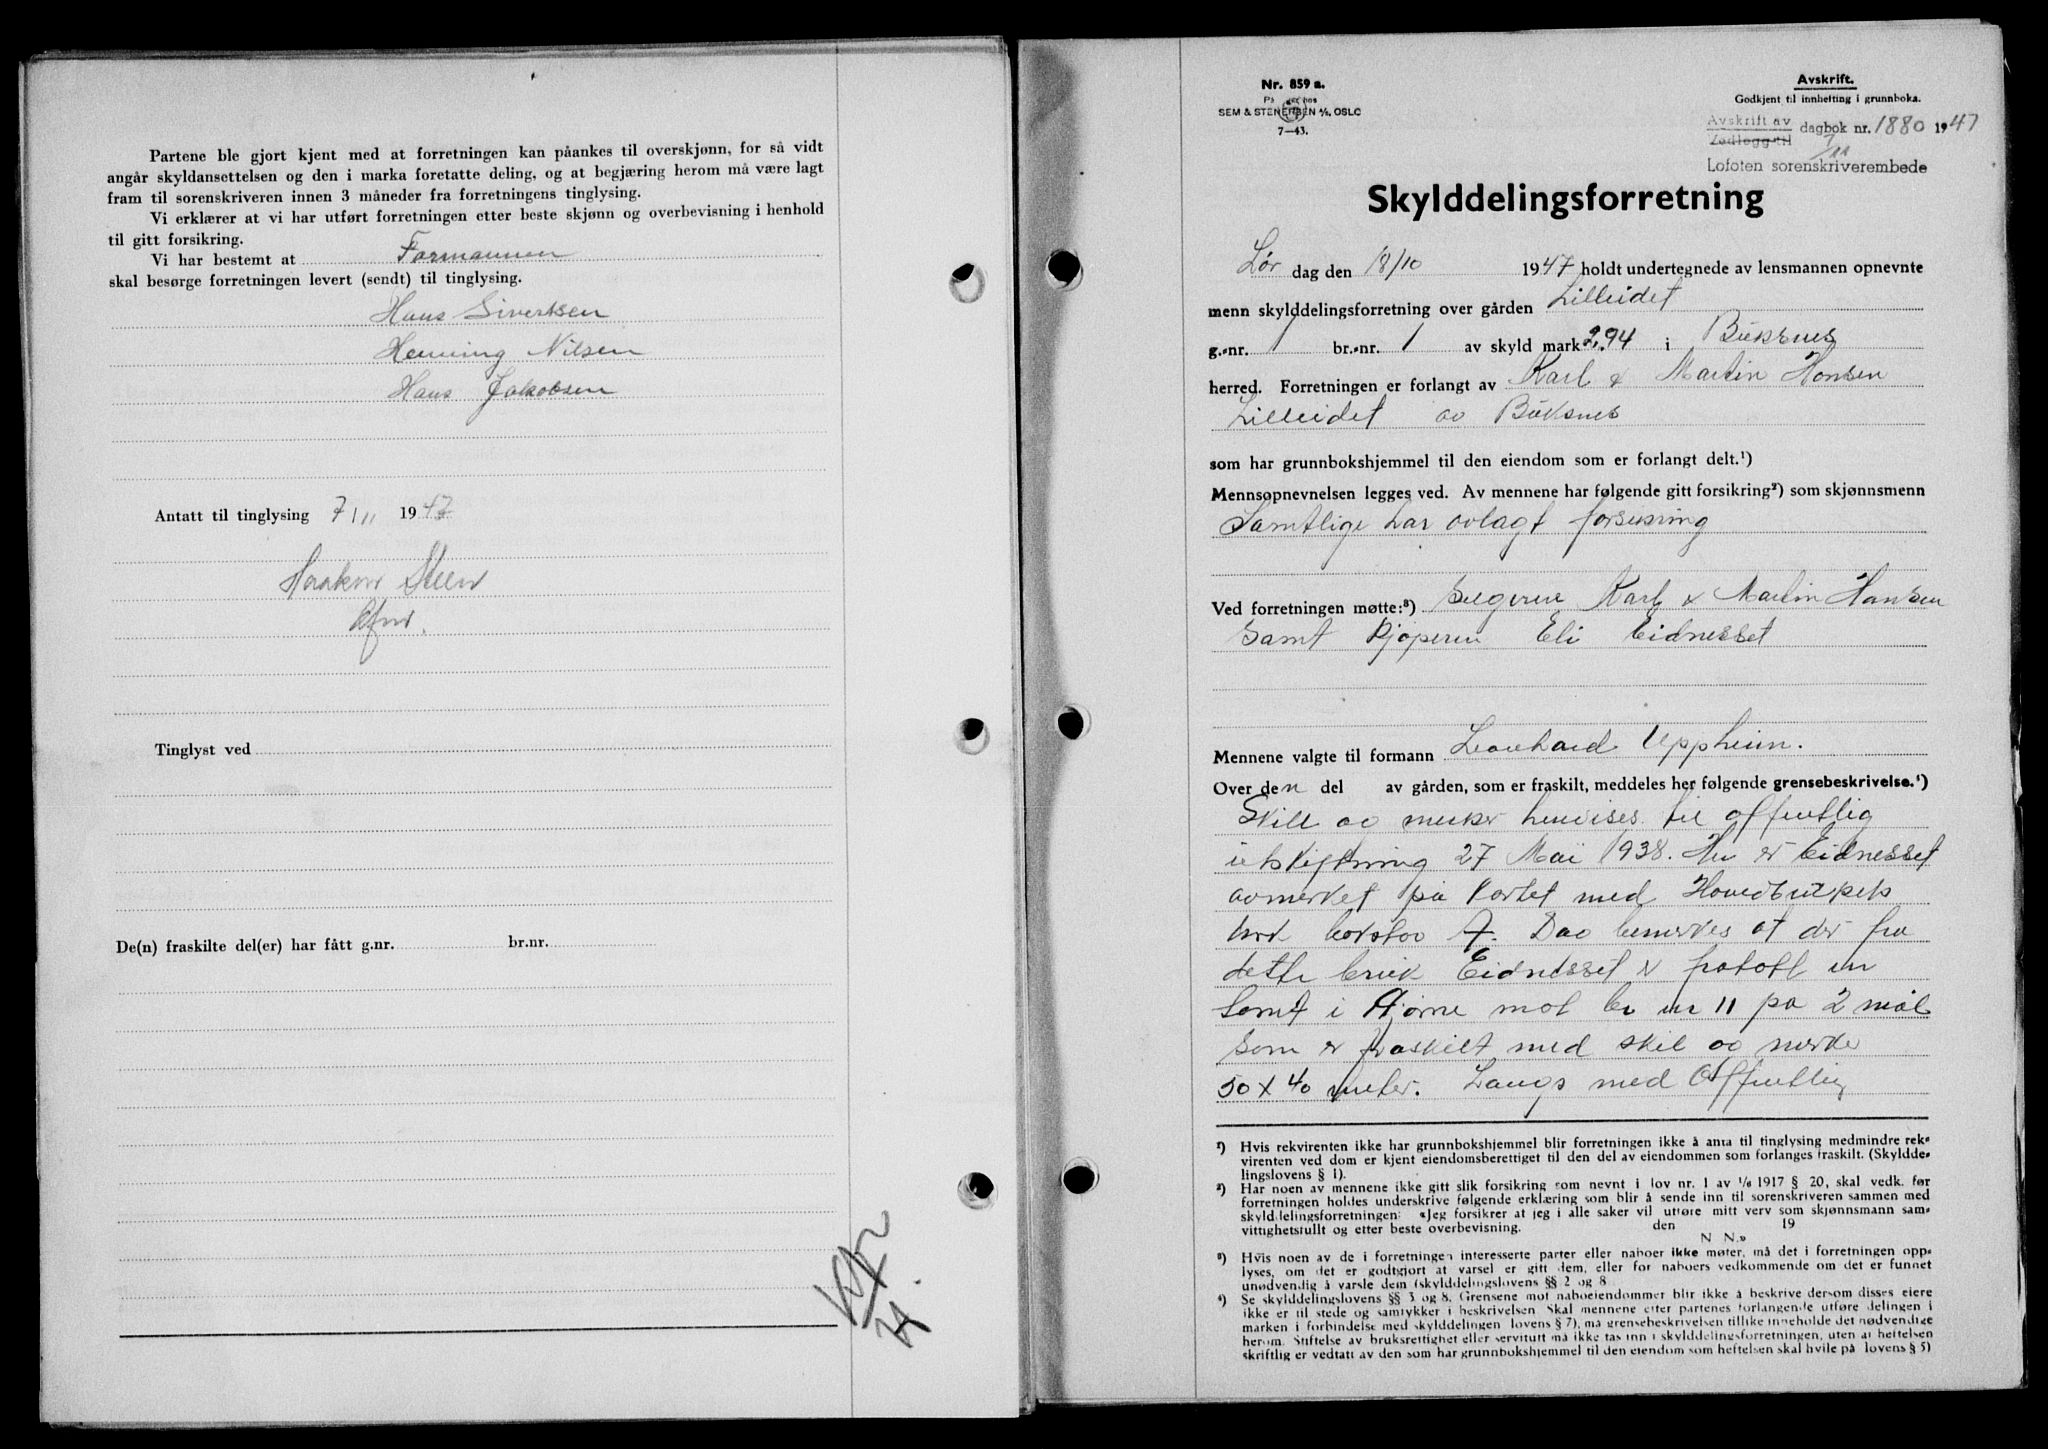 Partene ble gjort kjent med at forretningen kan påankes til overskjønn, for så vidt
angår skyldansettelsen og den i marka foretatte deling, og at begjæring herom må være lagt
fram til sorenskriveren innen 3 måneder fra forretningens tinglysing.
Vi erklærer at vi har utført forretningen etter beste skjønn og overbevisning i henhold
til gitt forsikring.
Vi har bestemt at Formannen
skal besørge forretningen levert (sendt) til tinglysing.
Hans Sivertsen
Henning Nilsen
Hans Jakobsen
Antatt til tinglysing 7/11 1947
Haakon Steen
Tinglyst ved
De(n) fraskilte del(er) har fått g.nr. br.nr.
Nr. 859 a.
SEM & STENERSEN A/S, OSLO
7—43.
Avskrift.
Godkjent til innhefting i grunnboka.
Avskrift av
Vedlegg til dagbok nr. 1880 1947
7/11
Lofoten sorenskriverembede
Skylddelingsforretning
Lør dag den 18/10 1947 holdt undertegnede av lensmannen opnevnte
menn skylddelingsforretning over gården Lilleidet
g.-nr. 1 br.-nr. 1 av skyld mark 2.94 i Buksnes
herred. Forretningen er forlangt av Karl & Martin Hansen
Lilleidet av Buksnes
som har grunnbokshjemmel til den eiendom som er forlangt delt.¹)
Mennsopnevnelsen legges ved. Av mennene har følgende gitt forsikring²) som skjønnsmenn
Samtlige har avlagt forsikring
Ved forretningen møtte:³) Selgerne Karl & Martin Hansen
Samt Kjøperen Eli Eidnesset
Mennene valgte til formann Leonhard Uppheim.
Over den del av gården, som er fraskilt, meddeles her følgende grensebeskrivelse.⁴)
Skill og merker henvises til offentlig
utskiftning 27 Mai 1938. Her er Eidnesset
avmerket på kartet med Hovedbrukets
bokstav A. Dog bemerkes at der fra
dette bruk Eidnesset er fratatt en
tomt i Hjørne mot br nr 11 på 2 mål
som er fraskilt med skil og merke
50 x 40 meter. Langs med Offentlig
¹) Hvis rekvirenten ikke har grunnbokshjemmel blir forretningen ikke å anta til tinglysing medmindre rek-
virenten ved dom er kjent eiendomsberettiget til den del av eiendommen som forlanges fraskilt. (Skyldde-
lingslovens § 1).
²) Har noen av mennene ikke gitt slik forsikring som nevnt i lov nr. 1 av 1/6 1917 § 20, skal vedk. før
forretningen holdes underskrive følgende erklæring som blir å sende inn til sorenskriveren sammen med
skylddelingsforretningen: «Jeg forsikrer at jeg i alle saker vil utføre mitt verv som skjønnsmann sam-
vittighetsfullt og etter beste overbevisning. den 19
N N.»
³) Hvis noen av de i forretningen interesserte parter eller naboer ikke møter, må det i forretningen opp-
lyses, om det er godtgjort at varsel er gitt dem, eller for naboers vedkommende om det er funnet
unødvendig å varsle dem (skylddelingslovens §§ 2 og 8
⁴) Se skylddelingslovens §§ 3 og 8. Grensene mot naboeiendommer blir ikke å beskrive dersom disses eiere
ikke er til stede og samtykker i beskrivelsen Skal mennene etter partenes forlangende utføre delingen i
marken i forbindelse med skylddelingen lovens § 7), må grensebeskrivelsen tillike inneholde det nødvendige
herom. Stiftelse av bruksrettighet eller servitutt må ikke tas inn i skylddelingsforretningen, uten at heftelsen
skriftlig er vedtatt av den som har grunnbokshjemmel til den eiendom som heftelsen skal hvile på lovens § 5)